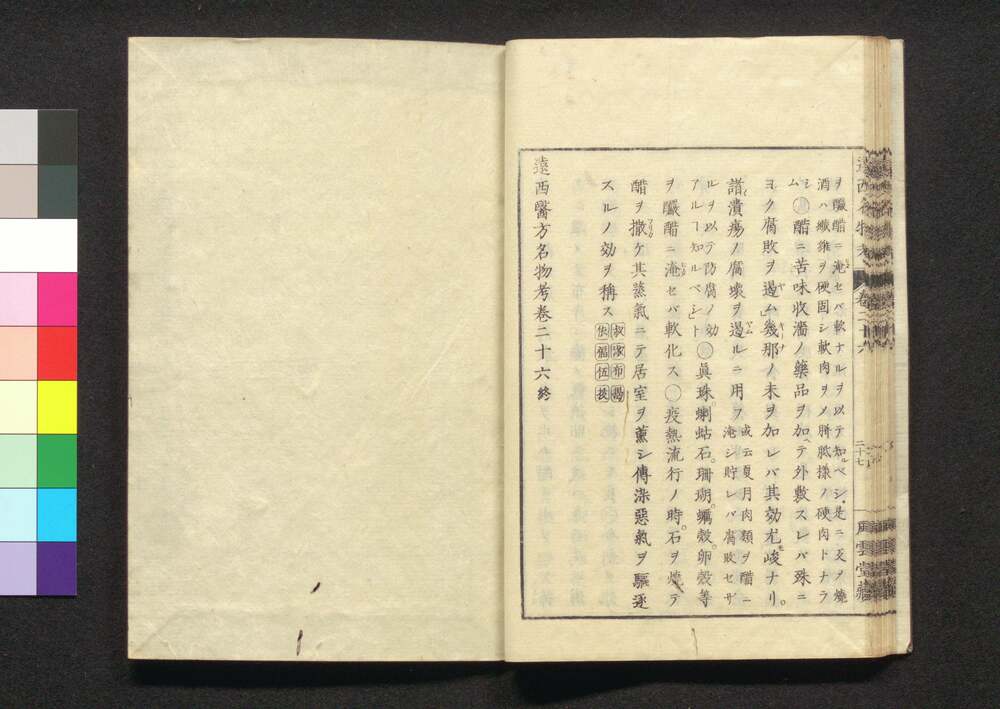 ヲ釅醋ニ淹セバ軟ナルヲ以テ知ベシ是ニ反ヲ燒
酒ハ纖維ヲ硬固シ軟肉ヲ〆胼胝様ノ硬肉トナラ
ム醋ニ苦味收濇ノ藥品ヲ加ヘテ外敷スレバ殊ニ
ヨク腐敗ヲ遏ム幾那ノ末ヲ加レバ其効尤峻ナリ
諸潰瘍ノ腐壊ヲ遏ルニ用フ
或云夏月肉類ヲ醋ニ
淹シ貯レバ腐敗セザ
ルヲ以テ防腐ノ効
アルヿ知ルベシト
眞珠蝲蛄石珊瑚蠣殼卵殼等
ヲ釅醋ニ淹セバ軟化ス〇疫熱流行ノ時石ヲ燒テ
醋ヲ撒ケ其蒸氣ニテ居室ヲ薫シ傳染惡氣ヲ驅逐
スルノ効ヲ稱ス
遠西醫方名物考卷二十六終
遠西名物考
卷二十六
二十七
風雲堂藏